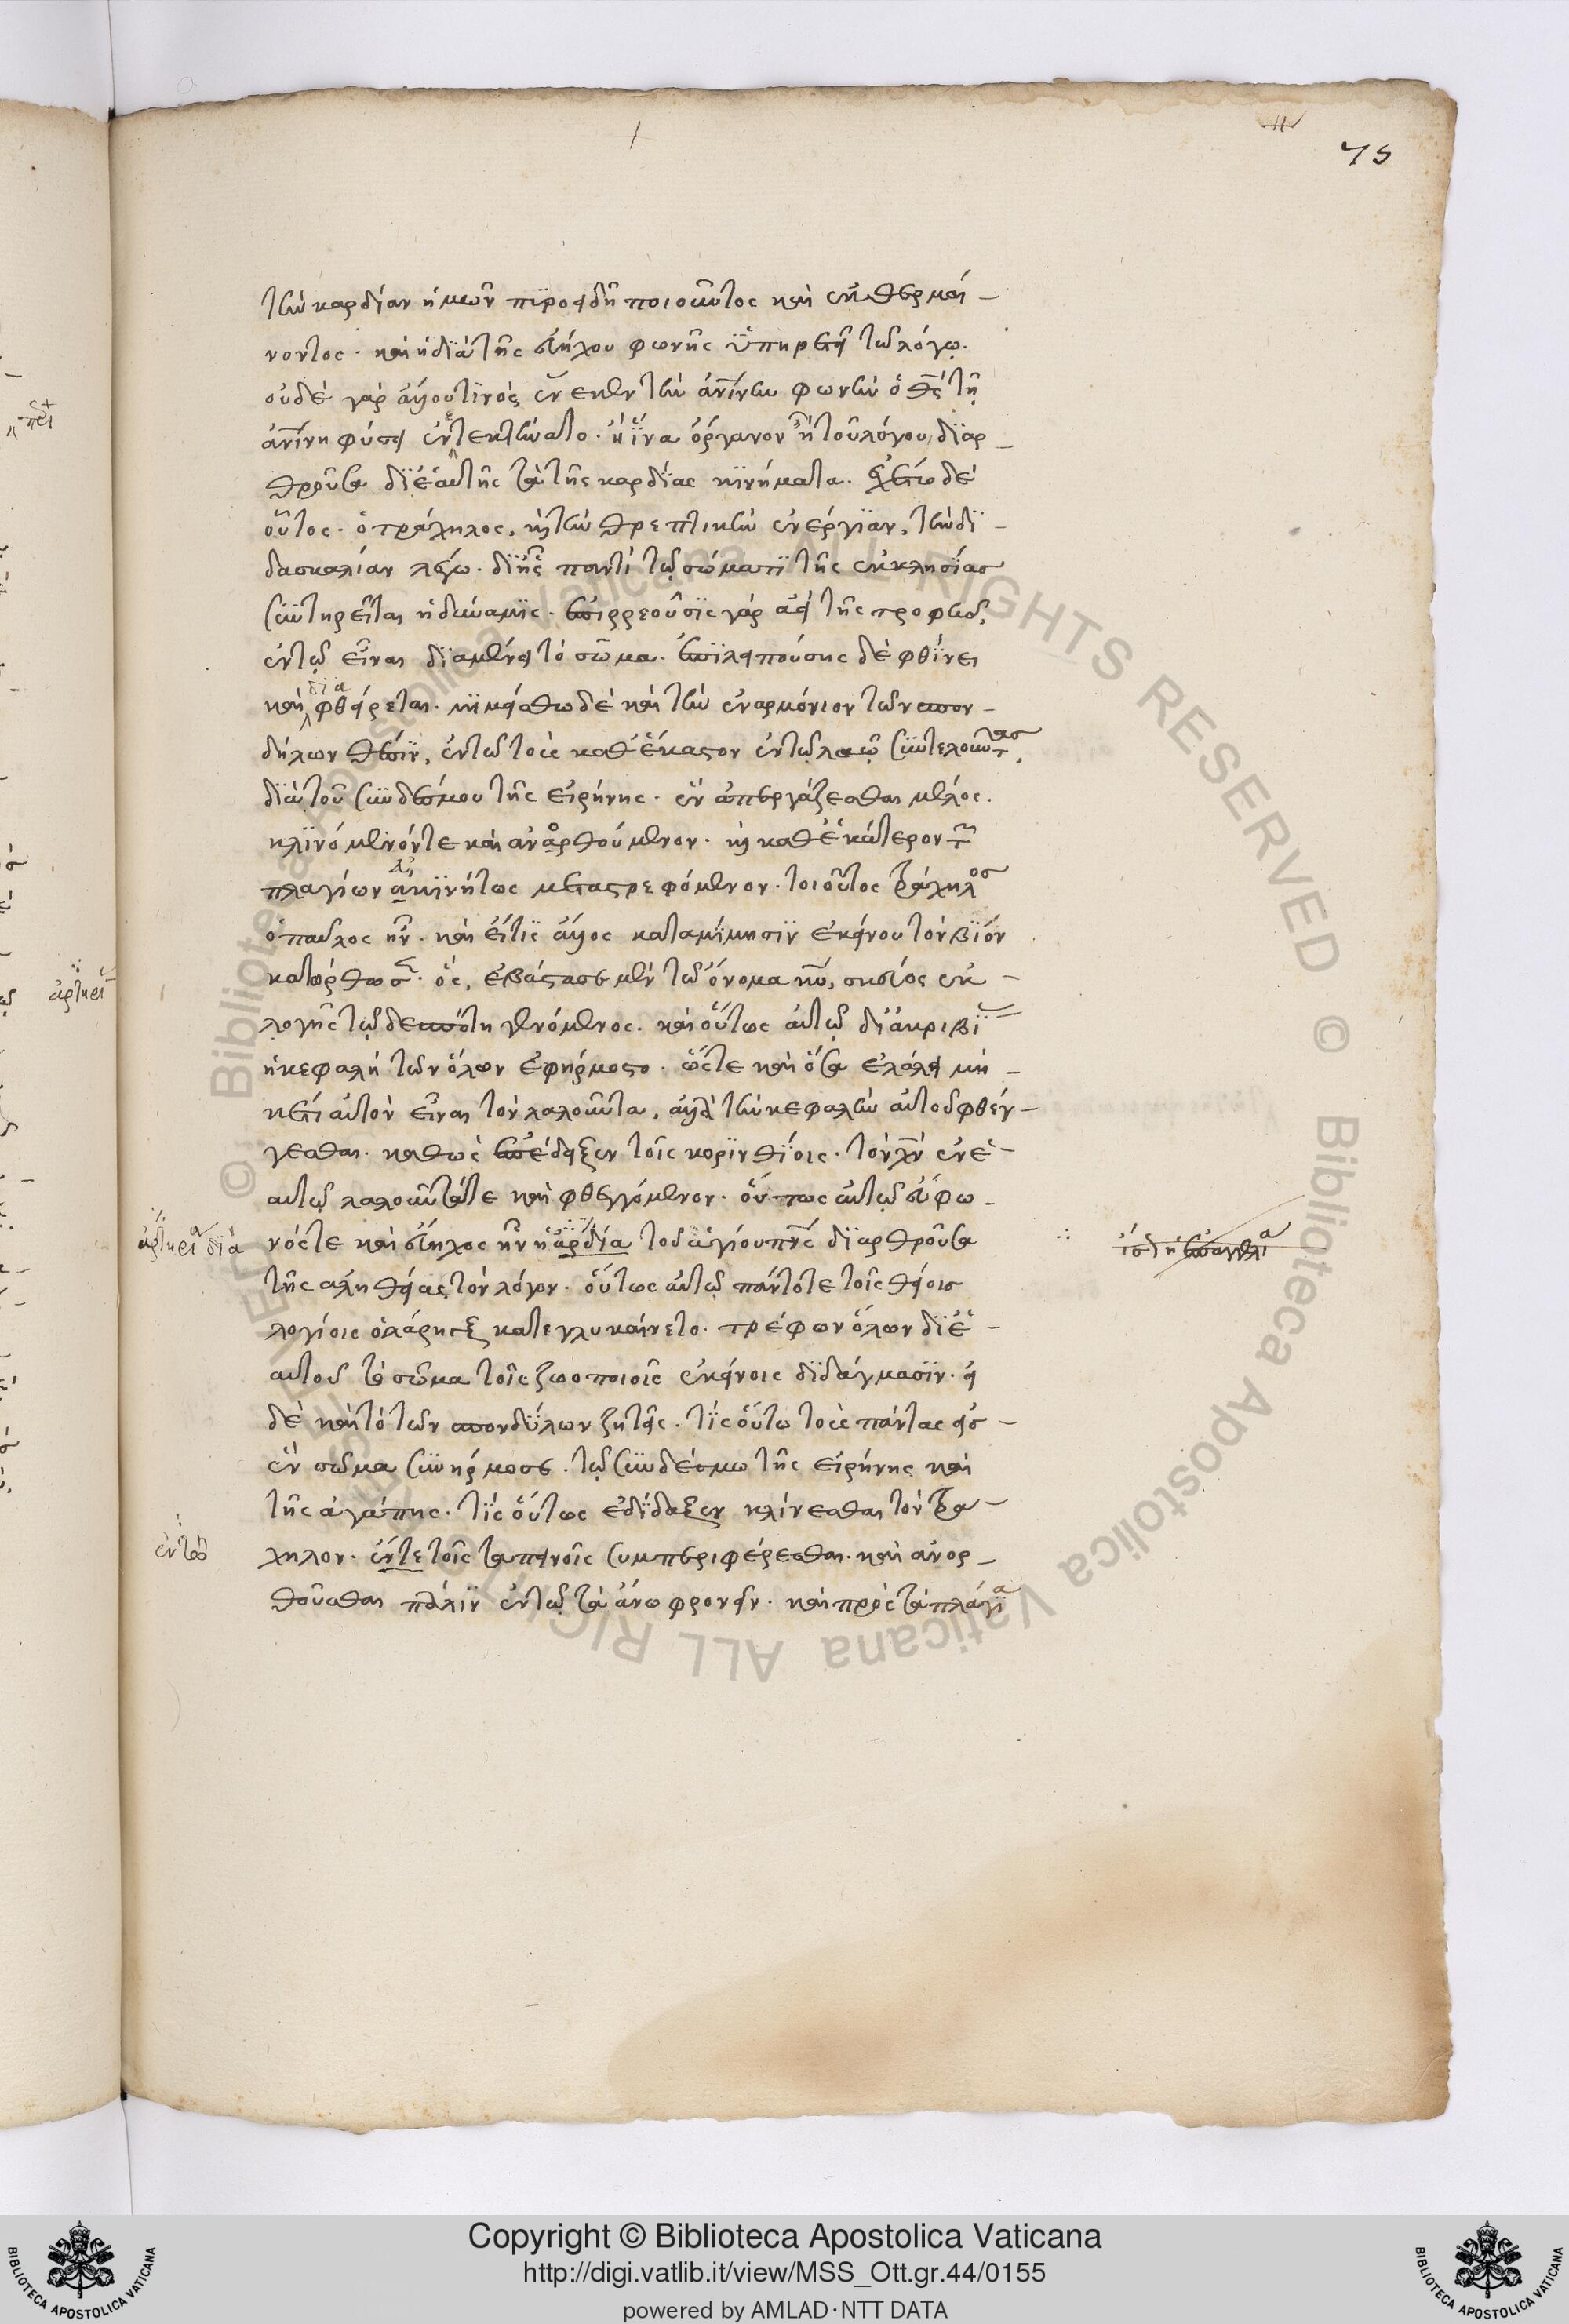 75
τὴν καρδίαν ἡμῶν πυροειδῆ ποιοῦντος καὶ ἐκθερμαί-
νοντος. καὶ ἡ διὰ τῆς στήχου φωνῆς ὑπηρετεῖ τῷ λόγῳ.
οὐδὲ γὰρ ἄλλου τινὸς ἕνεκεν τὴν ἀνίνην φωνὴν ὁ θς τῇ
ἀνίνῃ φύσει ἐνετεκτήνατο. ἢ ἵνα ὄργανον ᾖ τοῦ λόγου, διαρ-
θροῦσα δι' ἑαυτῆς τὰ τῆς καρδίας κινήματα. ἐχέτω δὲ
οὗτος. ὁ τράχηλος, καὶ τὴν θρεπτικὴν ἐνέργιαν, τὴν δι-
δασκαλίαν λέγω. δι' ἧς παντὶ τῷ σώματι τῆς ἐκκλησίας
συντηρεῖται ἡ δύναμις. ἐπιρρεούσις γὰρ ἀεὶ τῆς τροφῆς,
ἐν τῷ εἶναι διαμένει τὸ σῶμα. ἐπιλειπούσης δὲ φθίνει
καὶ διαφθείρεται. μιμείσθω δὲ καὶ τὴν ἐναρμόνιον τῶν σπον-
δήλων θέσιν, ἐν τῷ τοὺς καθ' ἕκαστον ἐν τῷ λαῷ συντελοῦντας,
διὰ τοῦ συνδεσμου τῆς εἰρήνης. ἓν ἀπεργάζεσθαι μέλος.
κλινόμενόντε καὶ ἀναορθούμενον. καὶ καθ' ἑκάτερον τῶν
πλαγίων εὐκινήτως μεταστρεφόμενον. τοιοῦτος τράχηλος
ὁ παῦλος ἦν. καὶ εἴτις ἄλλος κατὰ μίμησιν ἐκείνου τὸν βίον
κατώρθωσεν. ὃς, ἐβάστασε μὲν τὼ ὄνομα κυ, σκεῦος ἐκ-
λογῆς τῷ δεσπότη γενόμενος. καὶ οὕτως αὐτῷ δι' ἀκριβεί
ἡ κεφαλὴ τῶν ὅλων ἐφηρμοστο. ὥστε καὶ ὅσα ἐλάλει μη-
κέτι αὐτὸν εἶναι τὸν λαλοῦντα, ἀλλὰ τὴν κεφαλὴν αὐτοῦ φθέγ-
γεσθαι. καθὼς ἐπέδειξεν τοῖς κορινθίοις. τὸν χν ἐν ἑ-
αυτῷ λαλοῦντάτε καὶ φθεγγόμενον. οὕτως αὐτῷ εὔφω-
νόςτε καὶ εὔηχος ἦν ἡ ἀρδία τοῦ ἁγίου πνς διαρθροῦσα
τῆς ἀληθείας τὸν λόγον. οὕτως αὐτῷ πάντοτε τοῖς θείοις
λογίοις ὁ λάρηγξ κατεγλυκαίνετο. τρέφων ὅλων δι' ἑ-
αυτοῦ τὸ σῶμα τοῖς ζωοποιοῖς ἐκείνοις διδάγμασιν. εἰ
δὲ καὶ τὸ τῶν σπονδύλων ζητεῖς. τίς οὕτω τοὺς πάντας εἰς
ἓν σῶμα συνήρμοσε. τῷ συνδέσμω τῆς εἰρήνης καὶ
τῆς ἀγάπης. τίς οὕτως ἐδίδαξεν κλίνεσθαι τὸν τρά-
χηλον. ἔν τε τοῖς ταπεινοῖς συμπεριφέρεσθαι. καὶ ἀνορ-
θοῦσθαι πάλιν ἐν τῷ τὰ ἄνω φρονεῖν. καὶ πρὸς τὰ πλάγια
ἀρτηρία διὰ
ἐν τῷ